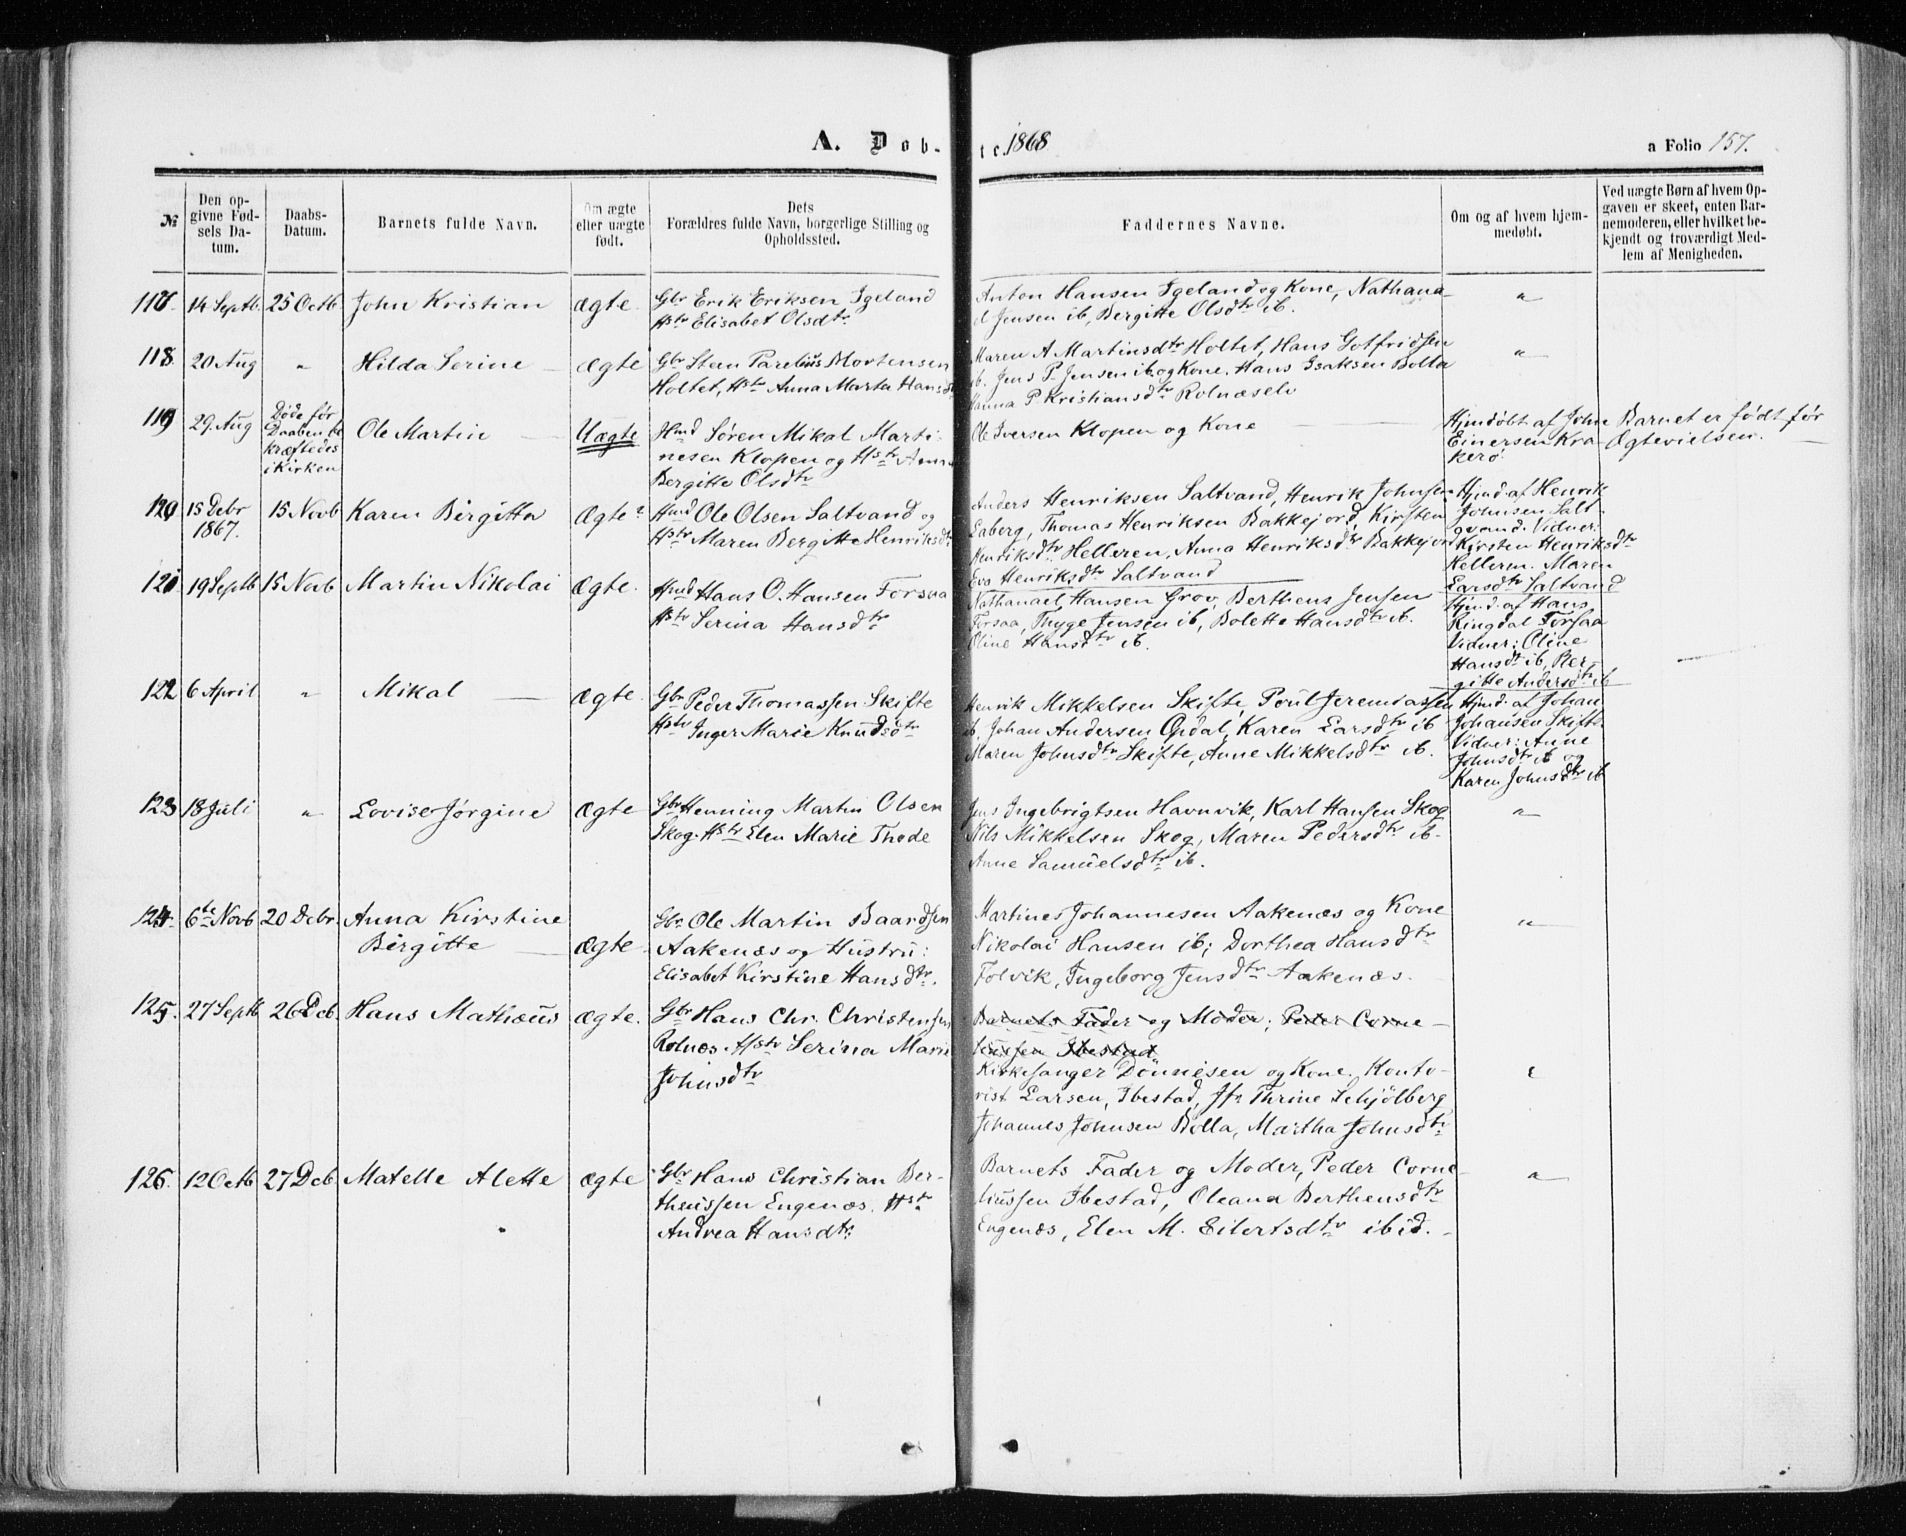 A. Døb-
te. 1868
a Folio 157.
№
Den op-
givne Fød-
sels Da-
tum.
Daabs-
Datum.
Barnets fulde Navn.
Om ægte
eller uægte
født.
Dets
Forældres fulde Navn, borgerlige Stilling og
Opholdssted.
Faddernes Navne.
Om og af hvem hjem-
medøbt.
Ved uægte Børn af hvem Op-
gaven er skeet, enten Bar-
nemoderen, eller hvilket be-
kjendt og troværdigt Med-
lem af Menigheden.
117. 14 Septb. 25 Octb. John Kristian Ægte.
Gbr Erik Eriksen Igeland
Hstr Elisabet Olsdtr
Anton Hansen Igeland og Kone, Nathana-
el Jensen ib, Bergitte Olsdtr ib.
"
118 20 Aug " Hilda Serine — Ægte
Gbr Steen Parelius Mortensen
Holtet, Hstr Anna Marta Hansdtr
Maren A Martinsdtr Holtet, Hans Gotfridsen
ib. Jens P. Jensen ib og Kone. Hans Isaksen Bolla
Hanna P. Kristiansdtr Rolnæseli
"
119 29. Aug
Døde før
Daaben be
kræftedes
i Kirken
Ole Martin — Uægte
Hmd Søren Mikal Marti-
nesen Klopen og Hstr Anna
Bergitte Olsdtr
Ole Iversen Klopen og Kone —
Hjmdøbt af John
Einersen Kra-
kerø.
Barnet er født før
Ægtevielsen. —
120 15 Debr
1867.
15 Novb Karen Birgitta Ægte
Hmd Ole Olsen Saltvand og
Hstr Maren Bergitte Henriksdtr
Anders Henriksen Saltvand, Henrik Johnsen
Laberg, Thomas Henriksen Bakkejord, Kirsten
Henriksdtr Helleren, Anna Henriksdtr Bakkejord
Eva Henriksdtr Saltvand
Hjmd. af Henrik
Johnsen Salt-
vand. Vidner:
Kirsten Henriksdtr
Hellerm. Maren
Larsdtr Saltvand
121 19 Septb 15 Novb Martin Nikolai Ægte.
Hmd Hans O. Hansen Forsaa
Hstr Serina Hansdtr
Nathanael Hansen Grov, Bertheus Jensen
Forsaa, Thyge Jensen ib, Bolette Hansdtr ib.
Oline Hansdtr ib.
Hjmd. af Hans
Ringdal Forsaa
Vidner: Oline
Hansdtr ib, Ber-
gitte Andersdtr ib
122 6 April " Mikal — Ægte.
Gbr Peder Thomassen Skifte
Hstr Inger Marie Knudsdtr
Henrik Mikkelsen Skifte, Poul Jeremiassen
ib, Johan Andersen Opdal, Karen Larsdtr ib
Maren Johnsdtr Skifte, Anne Mikkelsdtr ib.
Hjmd. af Johan
Johansen Skifte
Vidner: Anne
Johnsdtr ib og
Karen Johnsdtr ib
123 18 Juli " Lovise Jørgine Ægte
Gbr Henning Martin Olsen
Skog. Hstr Elen Marie Thode
Jens Ingebrigtsen Havnvik, Karl Hansen Skog
Nils Mikkelsen Skog, Maren Pedersdtr ib.
Anne Samuelsdtr ib.
"
124. 6te Novb 20 Debr. Anna Kirstine
Birgitte — Ægte
Gbr Ole Martin Baardsen
Aakenæs og Hustru:
Elisabet Kirstine Hansdtr.
Martines Johannesen Aakenæs og Kone
Nikolai Hansen ib; Dorthea Hansdtr
Folvik, Ingeborg Jensdtr Aakenæs.
"
125. 27 Septb 26 Deb. Hans Mathæus Ægte.
Gbr Hans Chr. Christensen
Rolnæs. Hstr Serina Marie
Johnsdtr
Barnets Fader og Moder; Peder Corne-
liussen Ibestad
Kirkesanger Dönnesen og Kone. Konto-
rist Larsen, Ibestad, Jfr Thrine Schjölberg
Johannes Johnsen Bolla, Martha Johnsdtr
"
126. 12 Octb 27 Deb Matelle Alette Ægte
Gbr Hans Christian Ber-
theussen Engenæs. Hstr
Andrea Hansdtr
Barnets Fader og Moder, Peder Corne-
liussen Ibestad, Oleana Bertheusdtr
Engenæs, Elen M. Eilertsdtr ibid. -
"